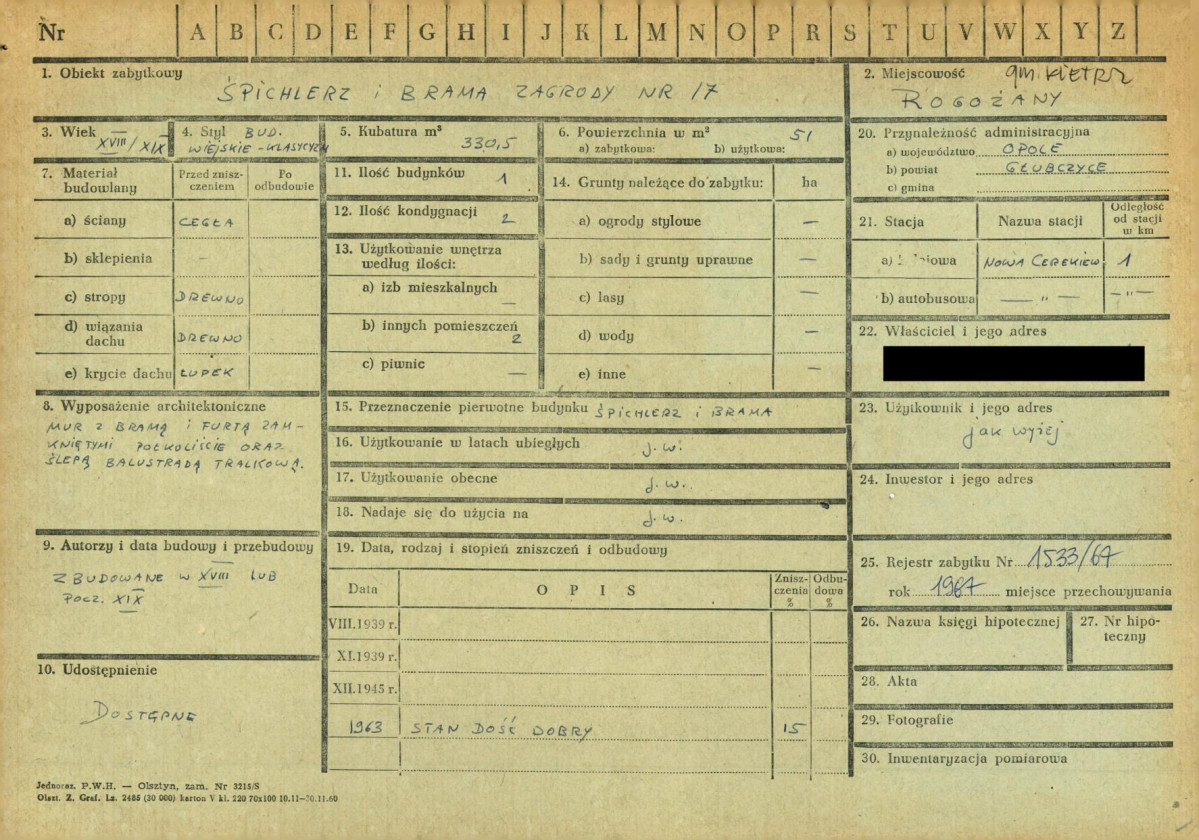 Nr A B C D E F G H I J K L M N O P R S T U V W X Y Z
1. Obiekt zabytkowy
ŚPICHLERZ i BRAMA ZAGRODY NR 17
2. Miejscowość gm. KIETRZ
ROGOŻANY
3. Wiek
XVIII/XIX
4. Styl BUD.
WIEJSKIE - KLASYCYZM
5. Kubatura m³
330,5
6. Powierzchnia w m² 51
a) zabytkowa: b) użytkowa:
7. Materiał budowlany
Przed zniszczeniem
Po odbudowie
a) ściany CEGŁA
b) sklepienia –
c) stropy DREWNO
d) wiązania dachu DREWNO
e) krycie dachu ŁUPEK
8. Wyposażenie architektoniczne
MUR Z BRAMĄ i FURTĄ ZAM-
KNIĘTYMI PÓŁKOLIŚCIE ORAZ
ŚLEPĄ BALUSTRADĄ TRALKOWĄ.
9. Autorzy i data budowy i przebudowy
ZBUDOWANE W XVIII LUB
POCZ. XIX
10. Udostępnienie
DOSTĘPNE
11. Ilość budynków 1
12. Ilość kondygnacji 2
13. Użytkowanie wnętrza
według ilości:
a) izb mieszkalnych —
b) innych pomieszczeń 2
c) piwnic —
14. Grunty należące do zabytku: ha
a) ogrody stylowe —
b) sady i grunty uprawne —
c) lasy —
d) wody —
e) inne —
15. Przeznaczenie pierwotne budynku ŚPICHLERZ i BRAMA
16. Użytkowanie w latach ubiegłych j. w.
17. Użytkowanie obecne j. w.
18. Nadaje się do użycia na j. w.
19. Data, rodzaj i stopień zniszczeń i odbudowy
Data OPIS Zniszczenia % Odbudowa %
VIII.1939 r.
XI.1939 r.
XII.1945 r.
1963 STAN DOŚĆ DOBRY 15
20. Przynależność administracyjna
a) województwo OPOLE
b) powiat GŁUBCZYCE
c) gmina
21. Stacja Nazwa stacji Odległość od stacji w km
a) NOWA CEREKIEW 1
b) autobusowa — „ — — „ —
22. Właściciel i jego adres
23. Użytkownik i jego adres
jak wyżej
24. Inwestor i jego adres
25. Rejestr zabytku Nr 1533/67
rok 1967 miejsce przechowywania
26. Nazwa księgi hipotecznej
27. Nr hipo-
teczny
28. Akta
29. Fotografie
30. Inwentaryzacja pomiarowa
Jednoraz. P.W.H. — Olsztyn, zam. Nr 3215/S
Olszt. Z. Graf. Lz. 2485 (30 000) karton V kl. 220 70x100 10.11—30.11.60